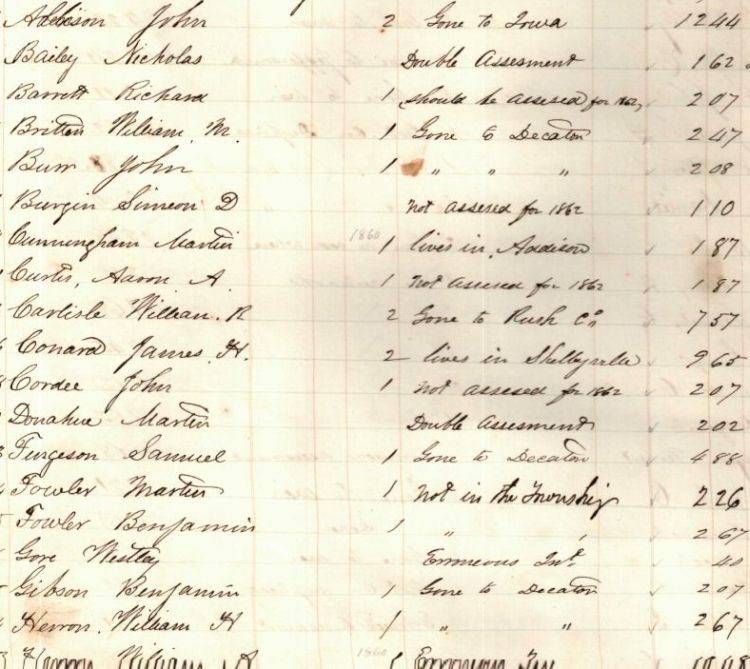 Addison John 2 Gone to Iowa 1244
Bailey Nicholas Double Assesment 162
Barrett Richard 1 should be assesed for 1862, 207
Britton William. M. 1 Gone to Decator 247
Burr John 1 " " " 208
Burgin Simeon D not assesed for 1862 110
Cunningham Martin 1860 1 lives in Addison 187
Curtis, Aaron A. 1 not assesed for 1862 187
Carlisle William. R 2 Gone to Rush Co. 757
Conard James. H. 2 lives in Shelbyville 965
Cordee John 1 not assesed for 1862 207
Donahue Martin Double Assesment 202
Furgeson Samuel 1 Gone to Decator 488
Fowler Martin 1 Not in the Township 226
Fowler Benjamin 1 " " 267
Gore Westley Erroneous Int. 40
Gibson Benjamin 1 Gone to Decator 207
Herron. William H 1 " " 267
William 1860 1